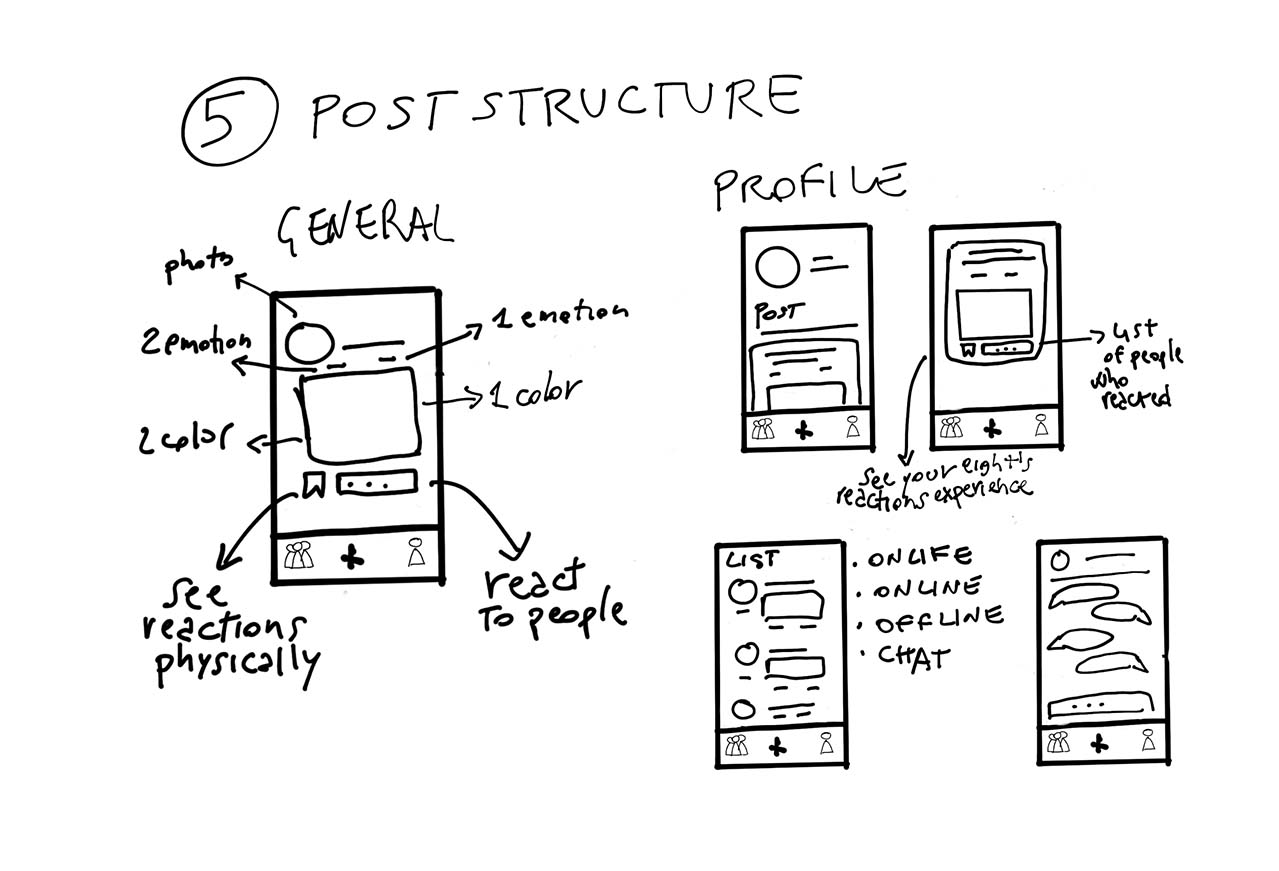 5 POST STRUCTURE
GENERAL
photo
2 emotion
1 emotion
1 color
2 color
see
reactions
physically
react
to people
PROFILE
POST
List
of people
who
reacted
see your
reactions experience
LIST
• ONLIFE
• ONLINE
• OFFLINE
• CHAT